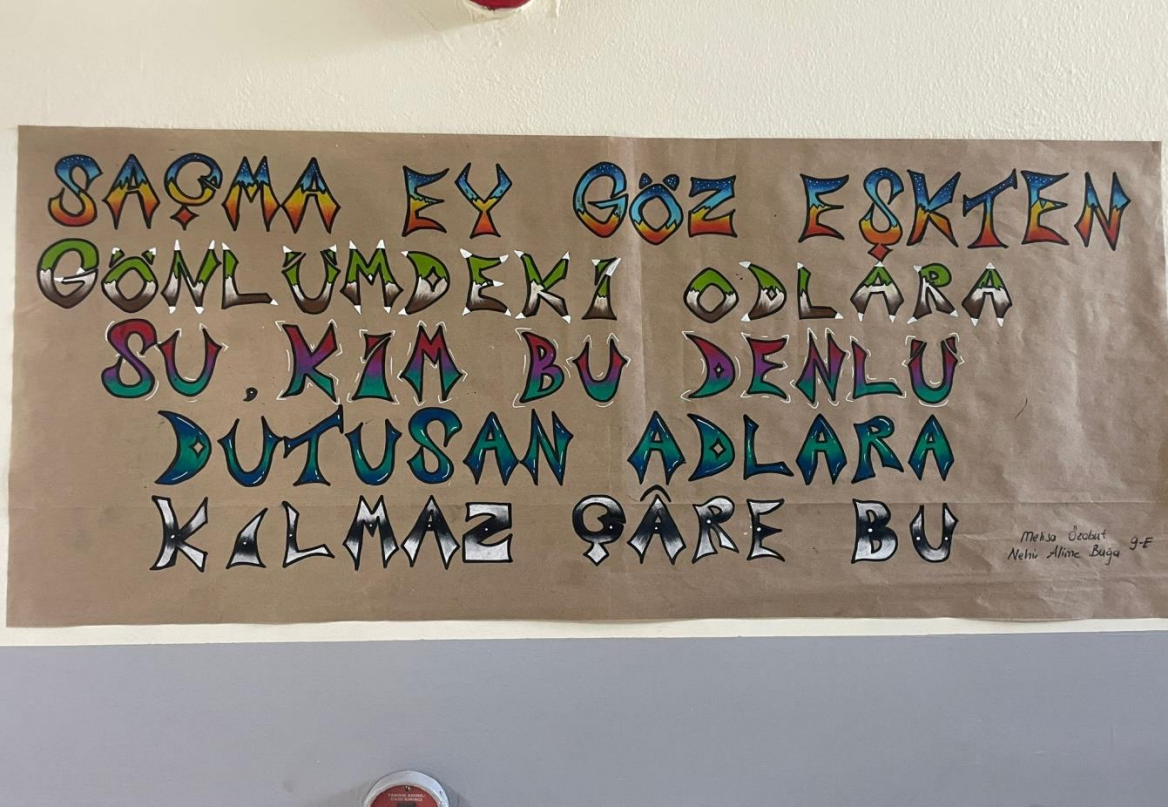 SAÇMA EY GÖZ EŞKTEN
GÖNLÜMDEKİ ODLARA
SU, KİM BU DENLÜ
DUTUSAN ADLARA
KILMAZ ÇÂRE BU
Melisa Özobut
Nehir Alime Buğa 9-E